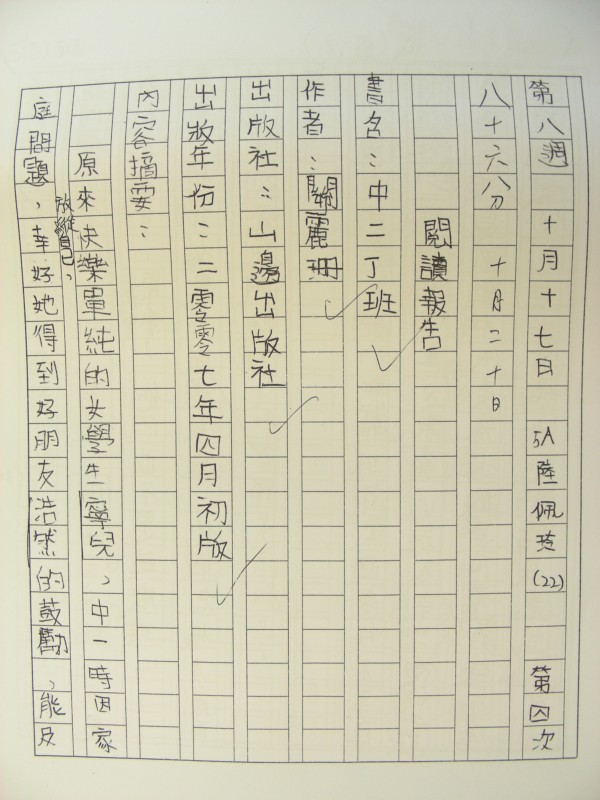 第八週 十月十七日 5A 陸佩琦 (22) 第四次
八十六分 十月二十日
閱讀報告
書名：中二丁班
作者：關麗珊
出版社：山邊出版社
出版年份：二零零七年四月初版
內容摘要：
原來快樂單純的女學生寧兒，中一時因家
庭問題，放縱自己，幸好她得到好朋友浩然的鼓勵，能及